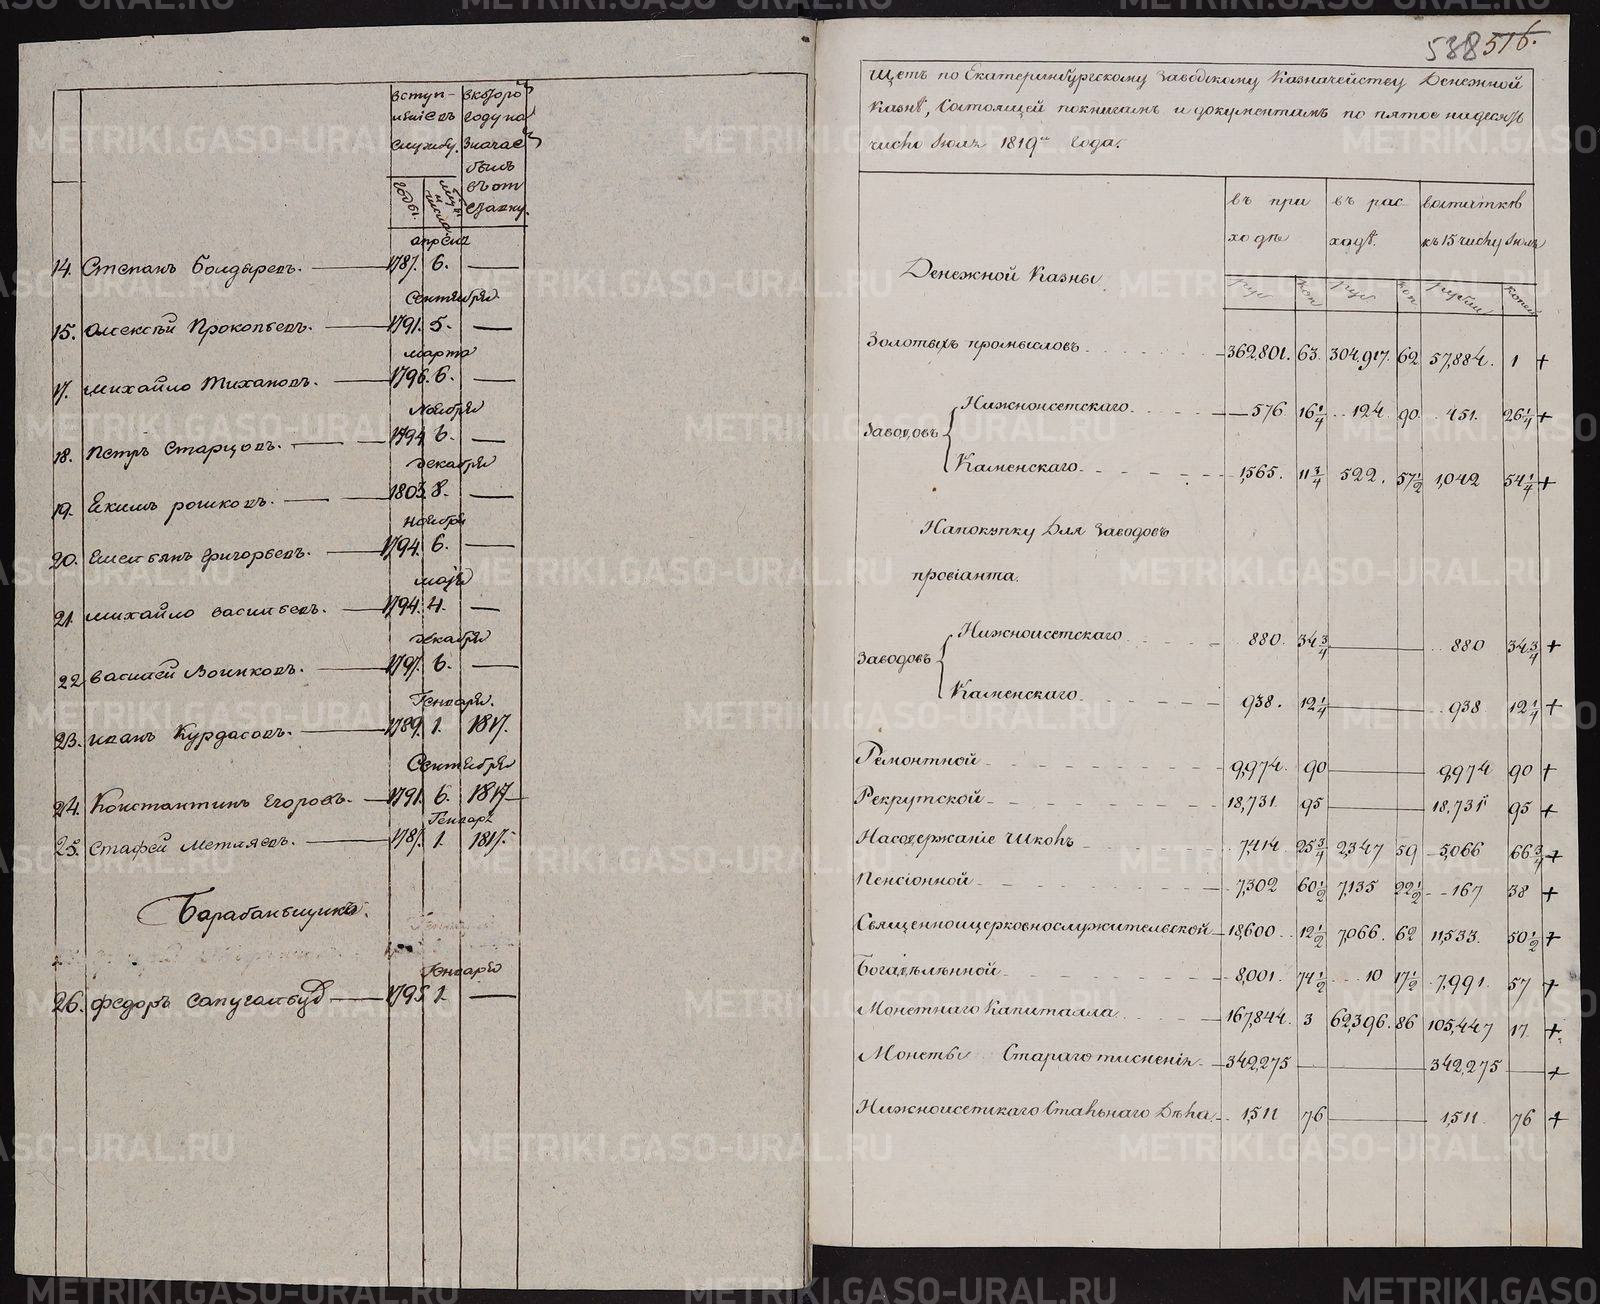 вступ-
ившевъ
службу.
вкоторо
году на
значае
былъ
въ от
ставку.
годы.
апреля
14. Степанъ Болдыревъ. 1787. 6. —
Сентября
15. Алексей Прокопьевъ. 1791. 5. —
марта
17. михайло Тихановъ. 1796. 6. —
Ноября
18. Петръ Старцовъ. 1794 6. —
декабря
19. Екимъ рошковъ. 1803. 8. —
ноября
20. Емельянъ григорьевъ. 1794. 6. —
маія
21. михайло васильевъ. 1794. 4. —
декабря
22 василей Воинковъ. 1797. 6. —
Генваря.
23. иванъ Курдасовъ. 1789. 1. 1817.
Сентября
24. Константинъ Егоровъ. 1791. 6. 1817
Генваря
25. Стафей Метляевъ. 1787. 1. 1817.
Барабанщикъ.
Генваря
26. федоръ 1795 1. —
538 516.
Щетъ по Екатеринбургскому Заводскому Казначейству Денежной
Казне, Состоящей покнигамъ и документамъ по пятое надесять
число Іюля 1819го года.
въ при
ходе
въ рас
ходе.
востатке
къ 15 числу Іюля
Денежной Казны
руб коп руб коп рубли копей
Золотыхъ промысловъ 362,801. 63. 304,917. 62 57,884. 1 +
Заводовъ
Нижноисетскаго 576. 16 1/4 124 90 451. 26 1/4 +
Каменскаго 1,565. 11 3/4 522. 57 1/2 1,042 54 1/4 +
Напокупку Для Заводовъ
провіанта.
Заводовъ
Нижноисетскаго 880. 34 3/4 — 880 34 3/4 +
Каменскаго 938. 12 1/4 — 938 12 1/4 +
Ремонтной 9,974. 90 — 9,974 90 +
Рекрутской 18,731. 95 — 18,731 95 +
Насодержаніе Школъ 7,414 25 3/4 2,347 59 5,066 66 3/4 +
Пенсіонной 7,302 60 1/2 7,135 22 1/2 167 38 +
Священноицерковнослужительской 18,600 12 1/2 7,066. 62 11,533. 50 1/2 +
Богадѣленной 8,001. 74 1/2 10 17 1/2 7,991. 57 +
Монетнаго Капиталла 167,844. 3 62,396. 86 105,447 17 +
Монеты Стараго тисненія 342,275 — 342,275 — +
Нижноисетскаго Стальнаго Дѣла 1,511 76 — 1,511. 76 +
METRIKI.GASO-URAL.RU